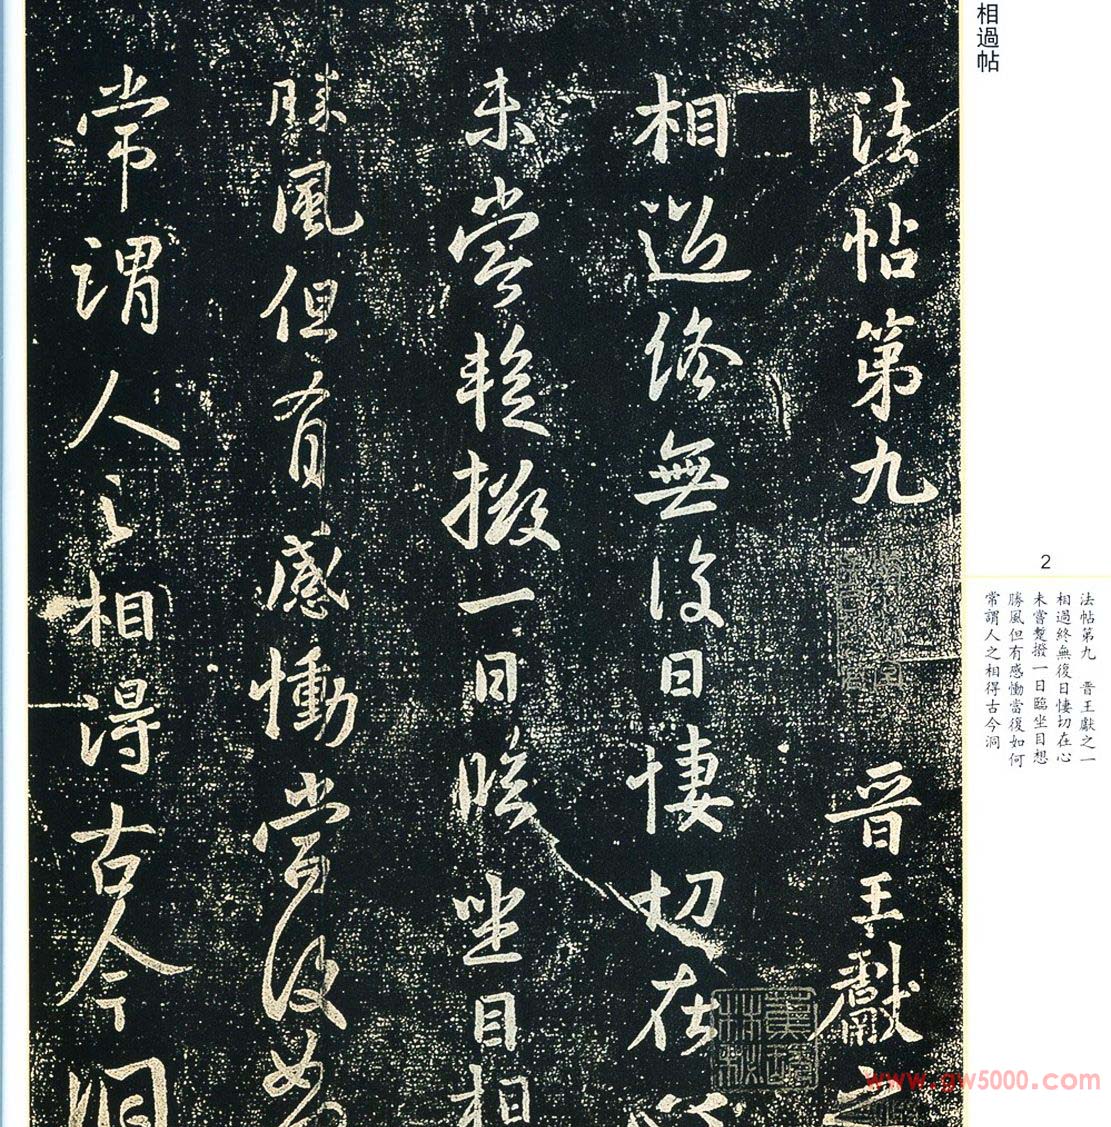 相過帖
法帖第九 晋王獻之
相過終無復日悽切在心
未嘗蹔撥一日臨坐目想
勝風但有感慟當復如
常謂人之相得古今洞
2
法帖第九 晋王獻之一
相過終無復日悽切在心
未嘗蹔撥一日臨坐目想
勝風但有感慟當復如何
常謂人之相得古今洞
www.gw5000.com